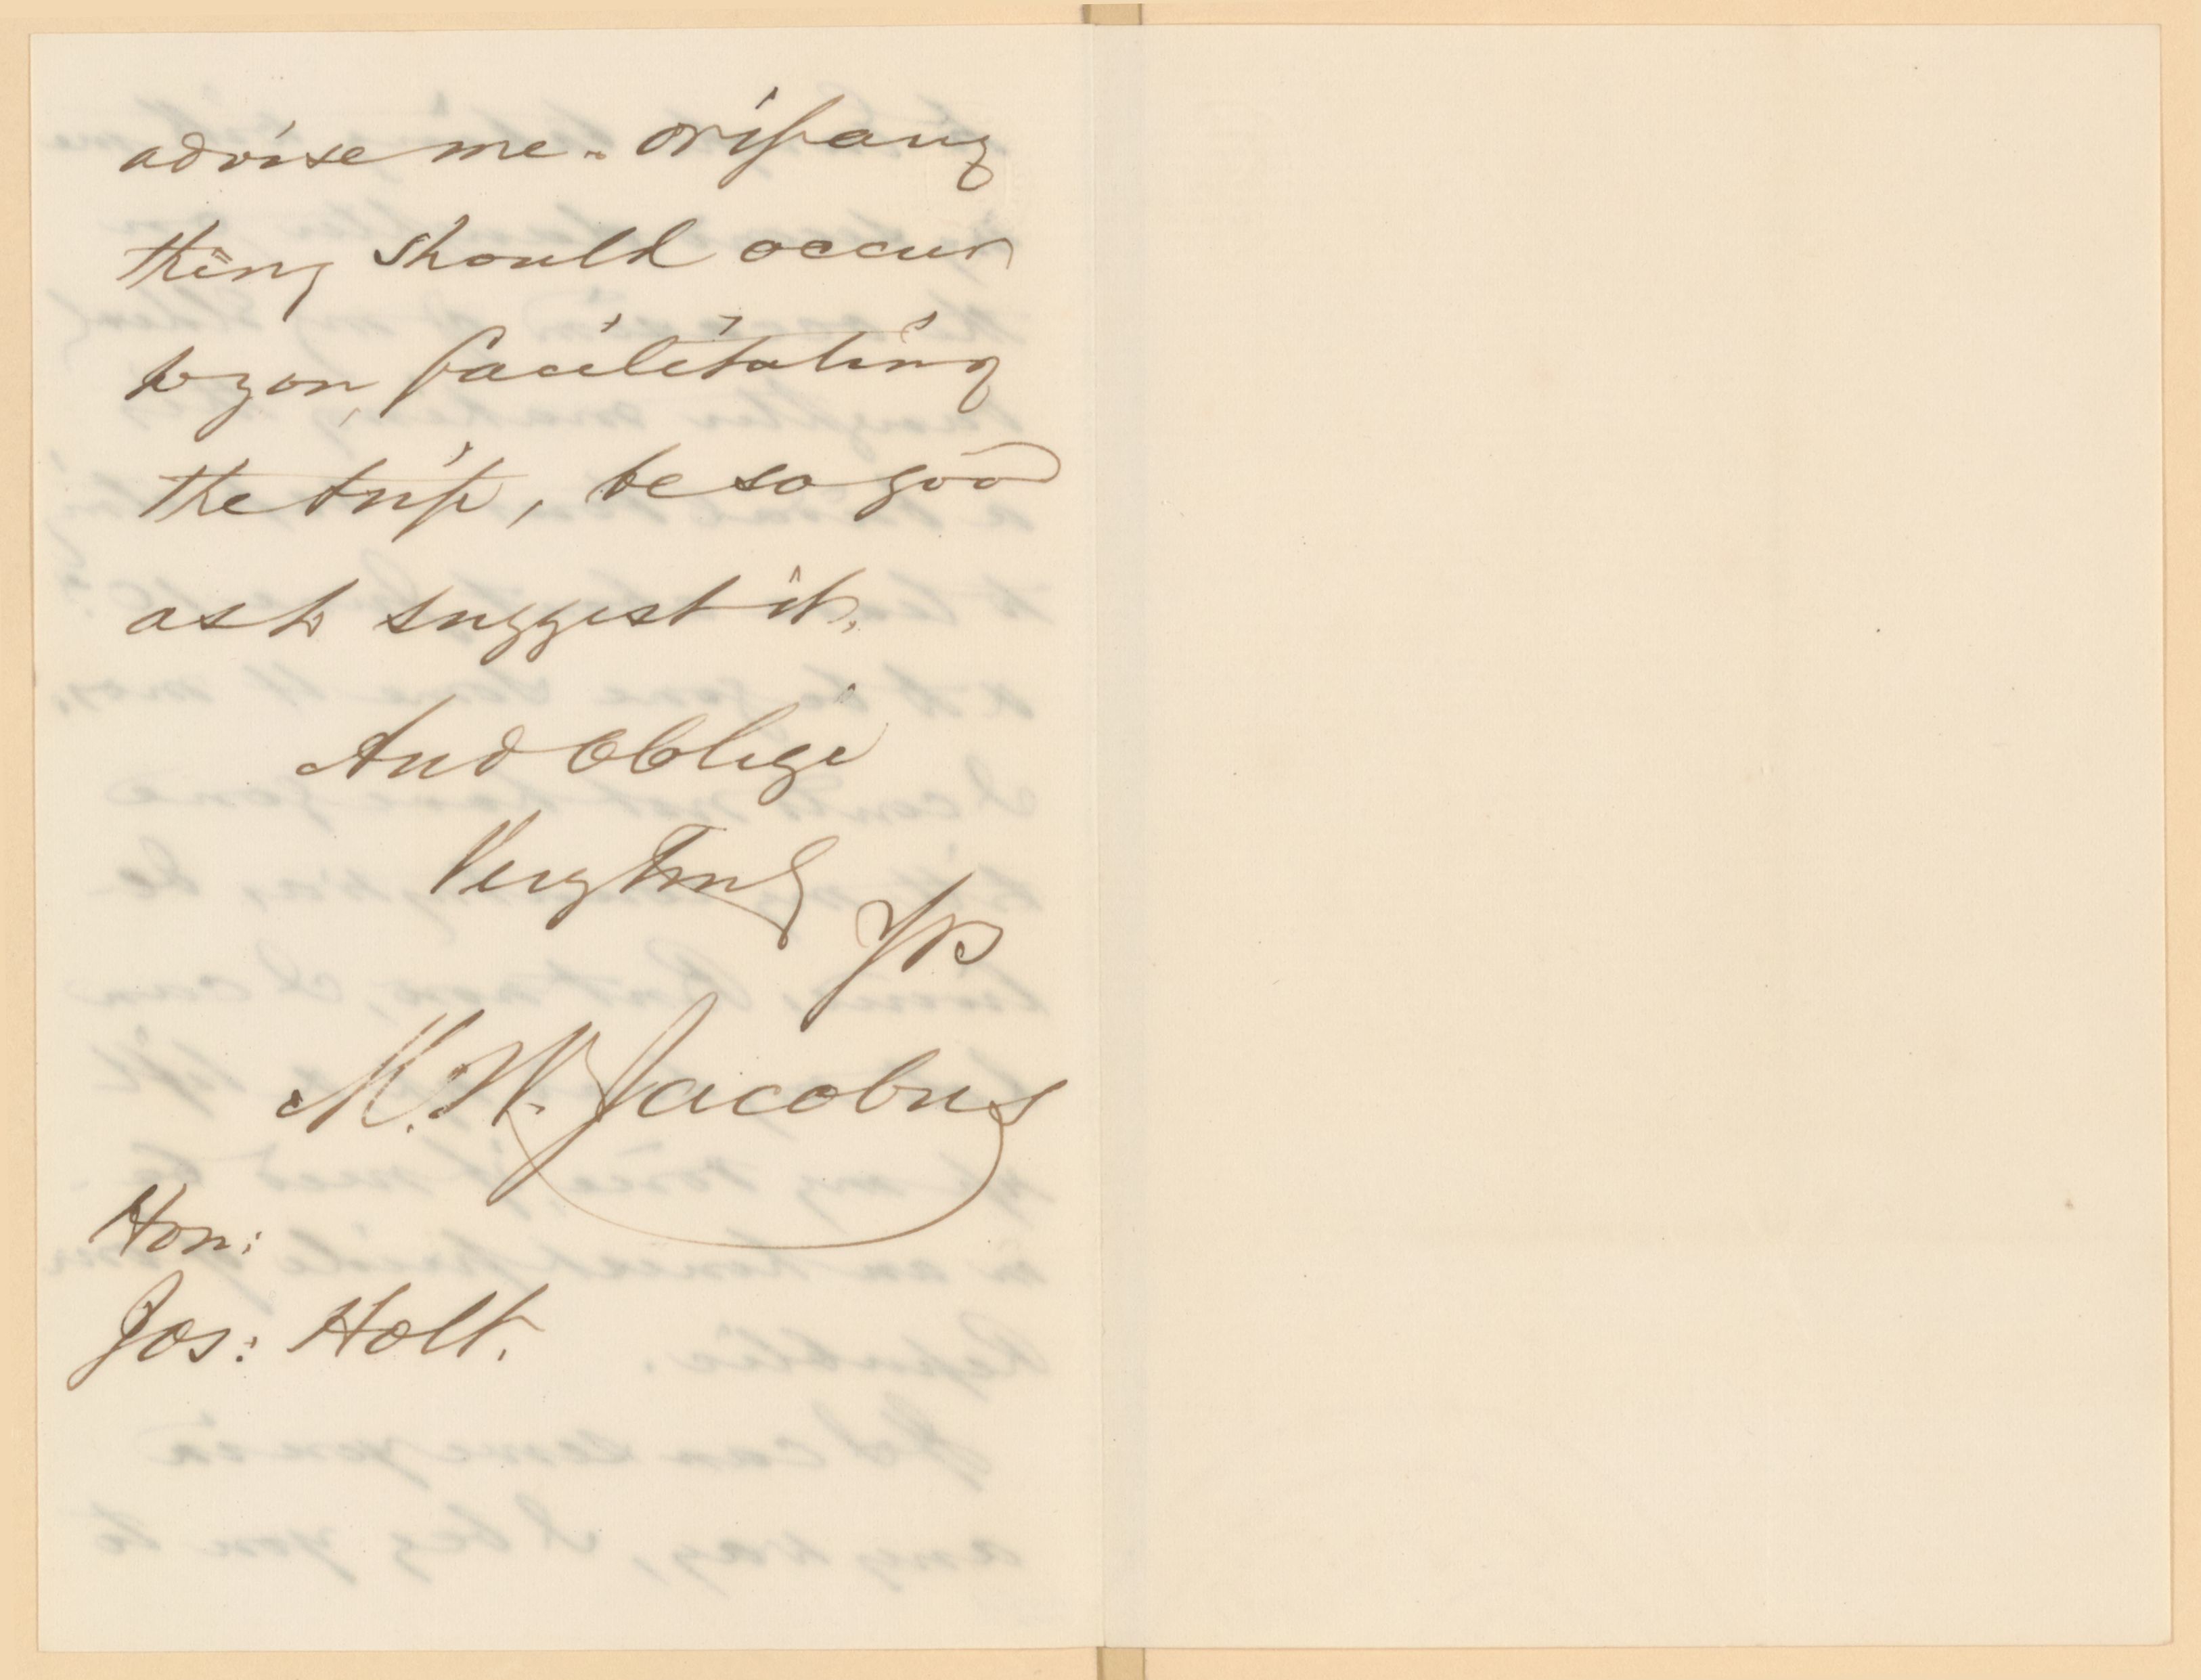 advise me. or if any
thing should occur
to you, facilitating
the trip, be so good
as to suggest it,
And oblige
Very Truly
Yrs
M. W. Jacobus
Hon:
Jos: Holt.